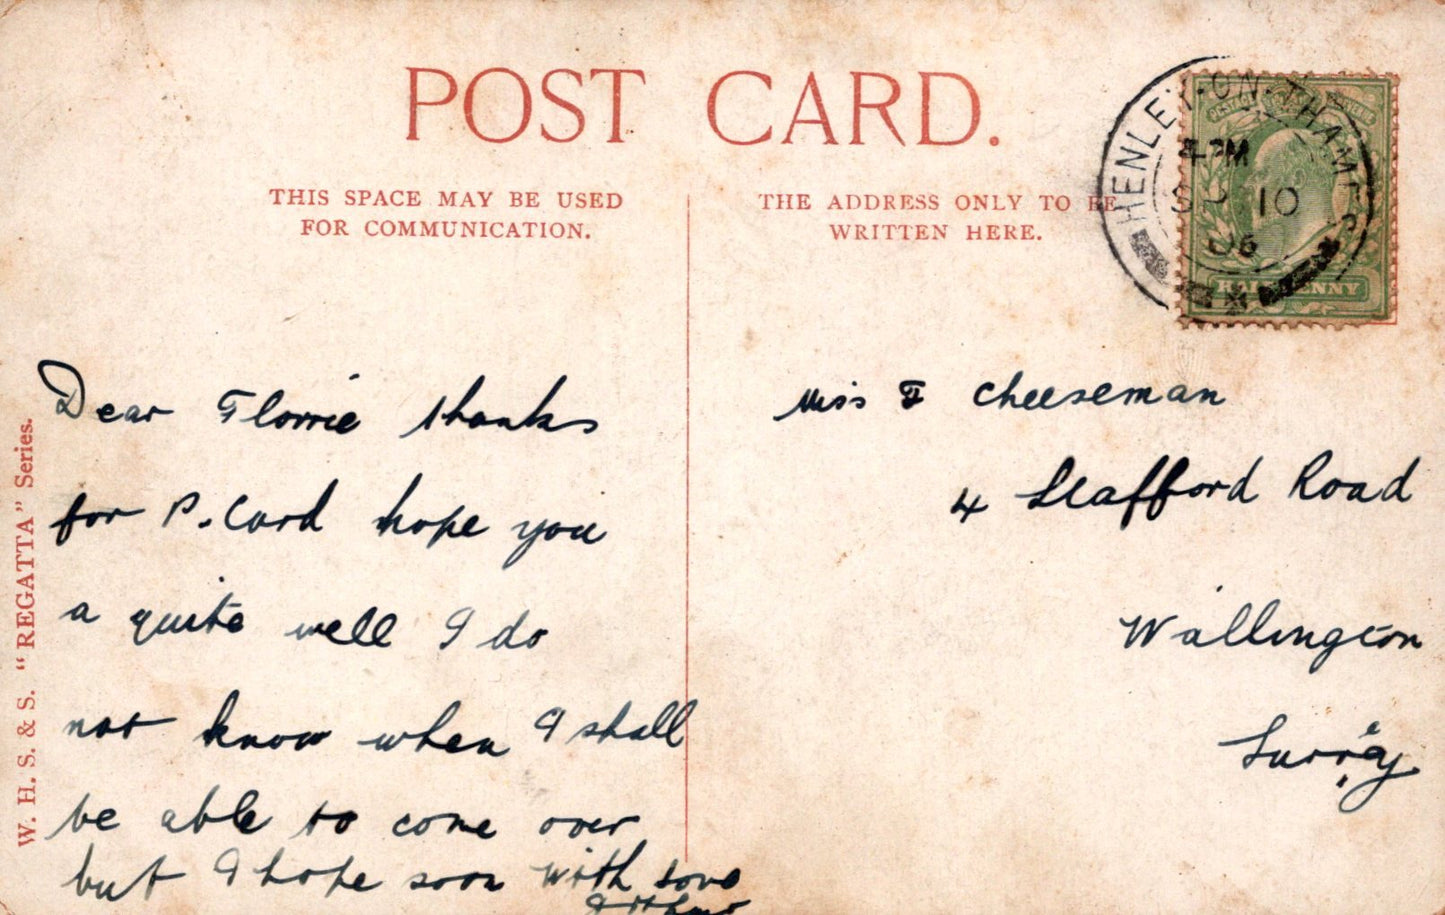 POST CARD.
THIS SPACE MAY BE USED
FOR COMMUNICATION.
THE ADDRESS ONLY TO BE
WRITTEN HERE.
HENLEY-ON-THAMES
4 PM
SP 10
06
HALFPENNY
W. H. S. & S. "REGATTA" Series.
Dear Florrie thanks
for P. Card hope you
a quite well I do
not know when I shall
be able to come over
but I hope soon with love
Arthur
Miss F Cheeseman
4 Stafford Road
Wallington
Surrey